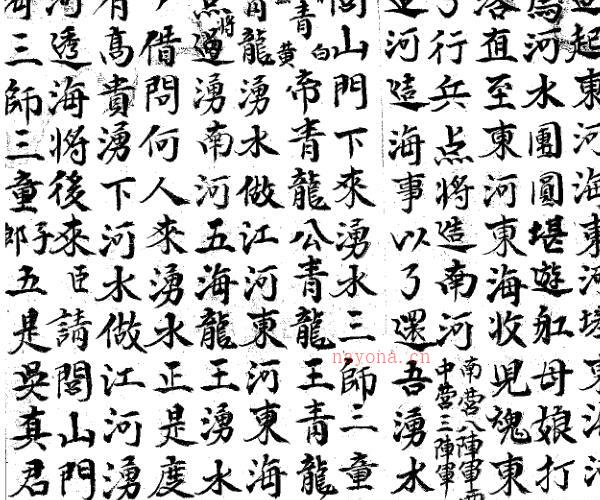 起東河海東河東海
河水團圓堪遊缸母娘打
落直至東河東海收児魂東
了行兵点將造南河南营八陣軍
中营三陣軍
河造海事以了還吾湧水
閭山門下來湧水三師三童
青黄白帝青龍公青龍王青龍
龍湧水做江河東河東海
点将過湧南河五海龍王湧水
借問何人來湧水正是度
有高貴湧下河水做江河湧
河透海將後來臣請閭山門
三師三童子郎五是吳真君
nayona.cn